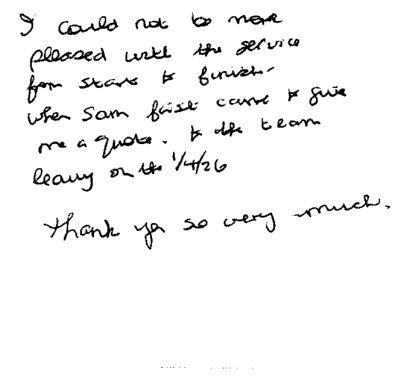 I could not be more
pleased with the service
from start to finish.
when Sam first came to give
me a quote. to the team
leaving on the 1/4/26
Thank you so very much.